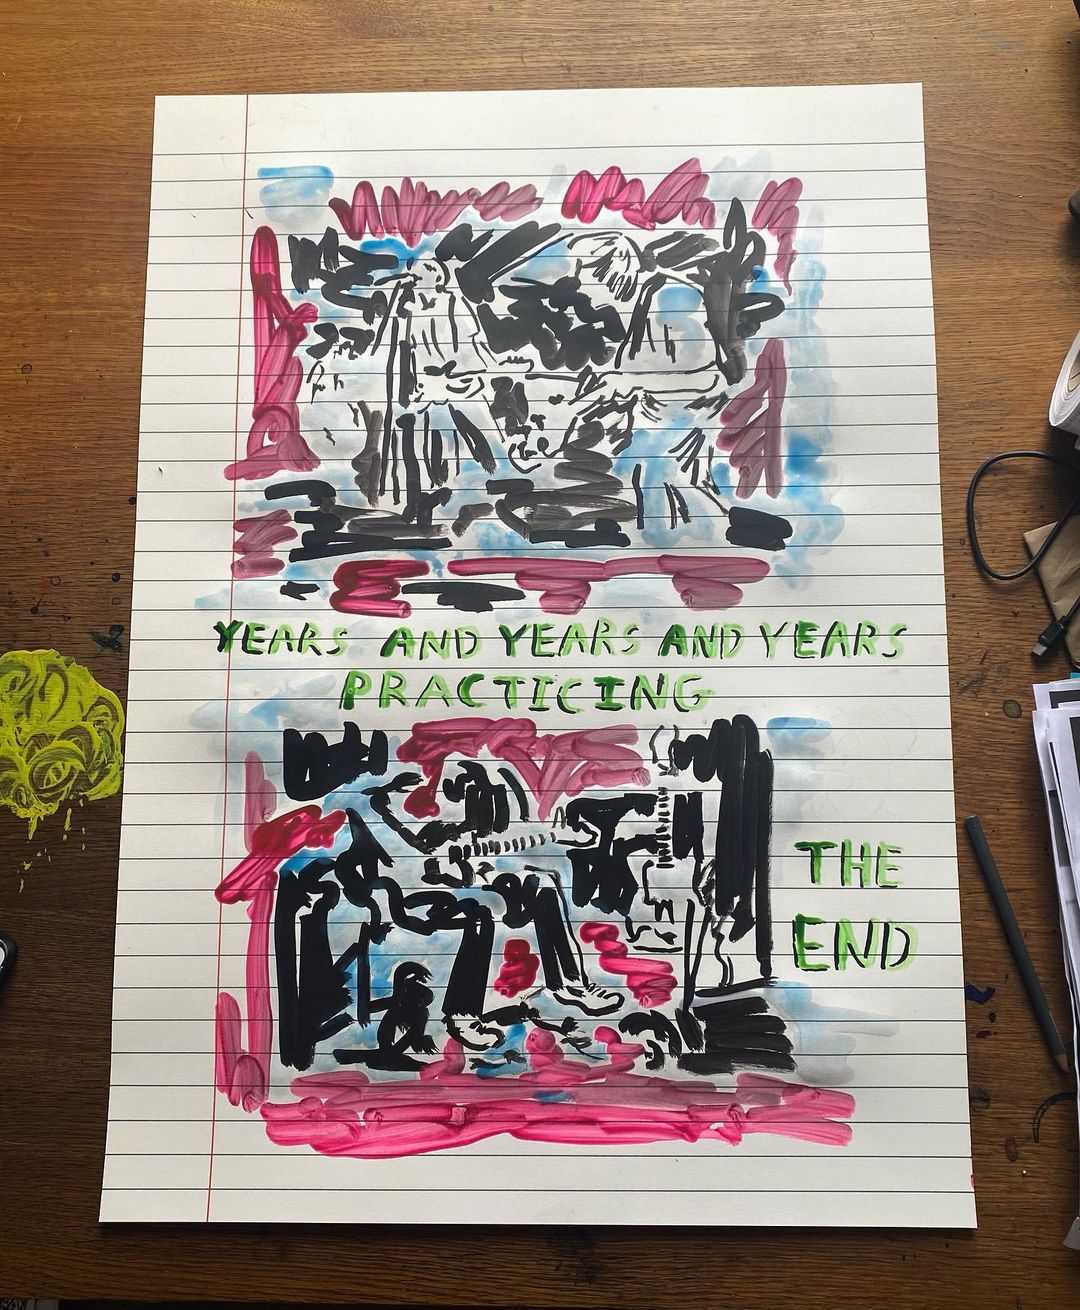 YEARS AND YEARS AND YEARS
PRACTICING
THE
END